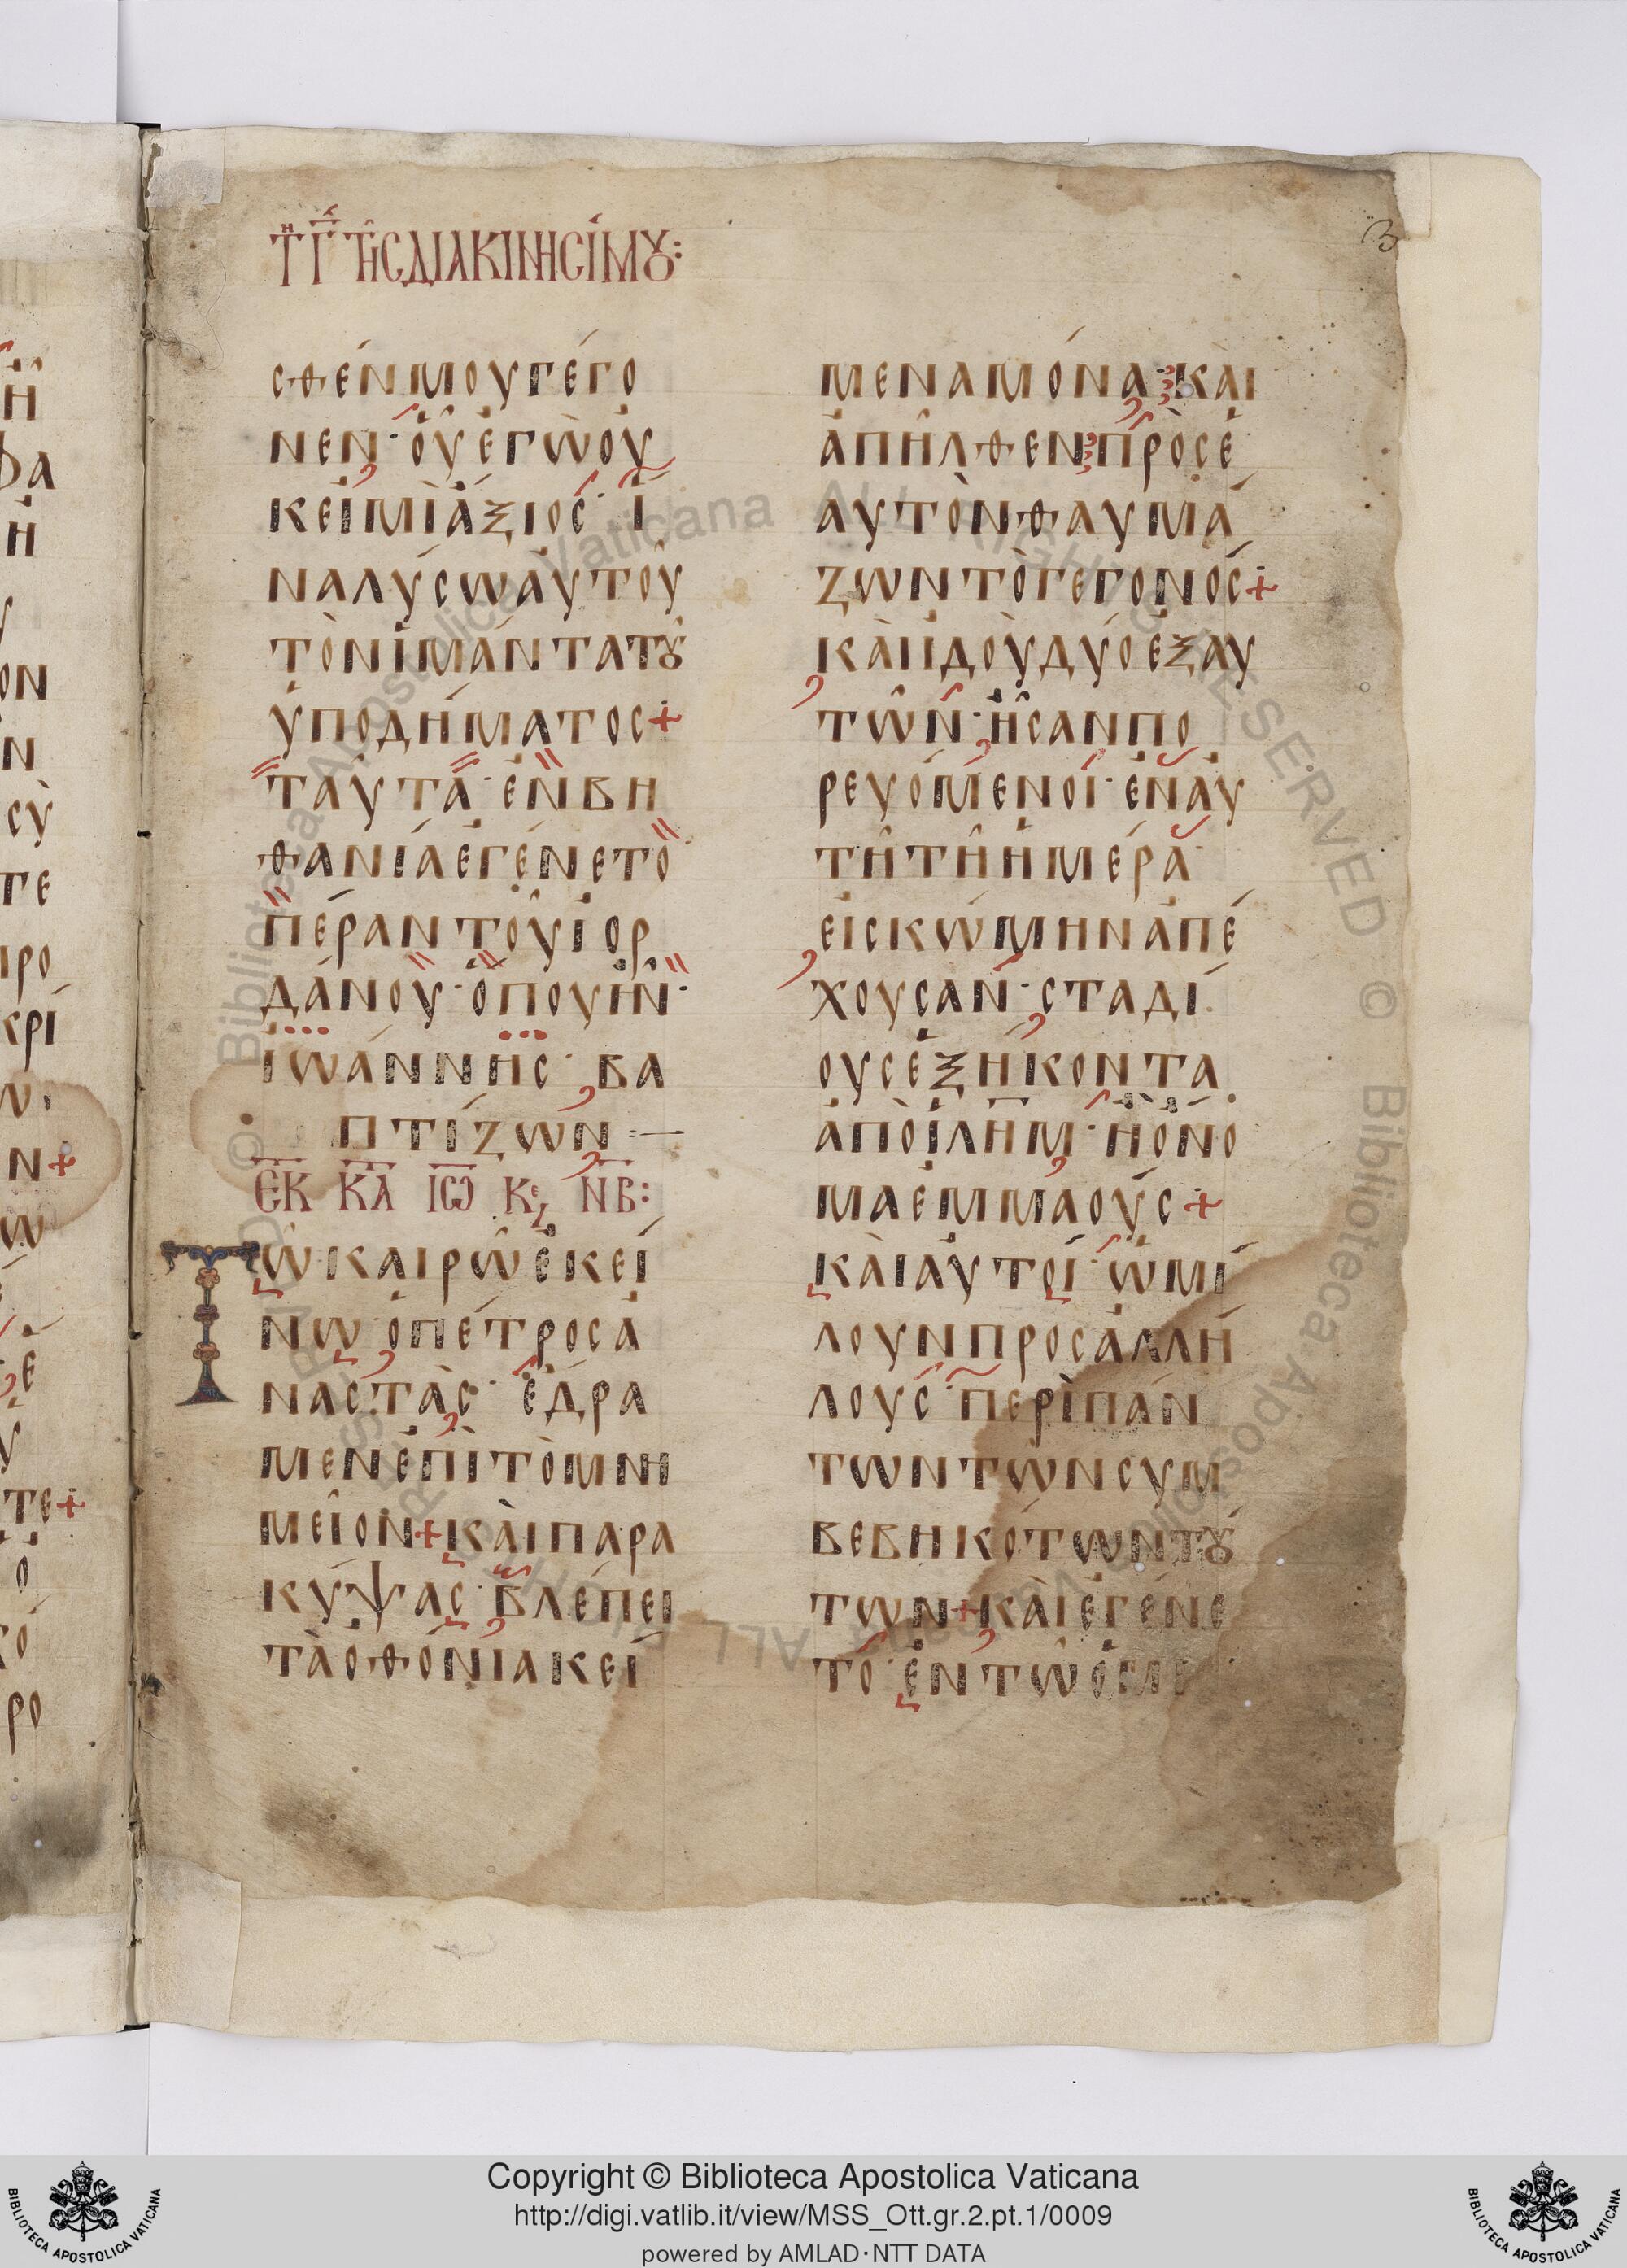 3
Τῇ Γ τῆς ΔΙΑΚΙΝΗΣΙΜΟΥ:
σθέν μου γέγο
νεν· οὗ ἐγὼ οὐ
κ εἰμὶ ἄξιος· ἵ
να λύσω αὐτοῦ
τὸν ἱμάντα τοῦ
ὑποδήματος+
ταῦτα· ἐν βη
θανία ἐγένετο
πέραν τοῦ ἰορ
δάνου· ὅπου ἦν·
ἰωάννης· βα
πτίζων:—
ἘΚ ΚΑ ΙΩ Κε ΝΒ:
Τῶ καιρῶ ἐκεί
νω ὁ πέτρος ἀ
ναστὰς· ἔδρα
μεν ἐπὶ τὸ μνη
μεῖον+καὶ παρα
κύψας· βλέπει
τὰ ὀθόνια κεί
μενα μόνα· καὶ
ἀπῆλθεν πρὸς ἑ
αυτὸν θαυμά
ζων τὸ γεγονός+
καὶ ἰδοὺ δύο ἐξ αυ
τῶν· ἦσαν πο
ρευόμενοι· ἐν αὐ
τῆ τῆ ἡμέρα·
εἰς κώμην ἀπέ
χουσαν· σταδί
ους ἑξήκοντα
ἀπὸ ἰλημ· ἧ ὄνο
μα εμμαούς+
καὶ αὐτοὶ· ὡμί
λουν προς ἀλλή
λους· περὶ πάν
των τῶν συμ
βεβηκότων τού
των+καὶ ἐγένε
το· ἐν τῶ ὁμι
Copyright © Biblioteca Apostolica Vaticana
http://digi.vatlib.it/view/MSS_Ott.gr.2.pt.1/0009
powered by AMLAD·NTT DATA
BIBLIOTECA APOSTOLICA VATICANA
BIBLIOTECA APOSTOLICA VATICANA